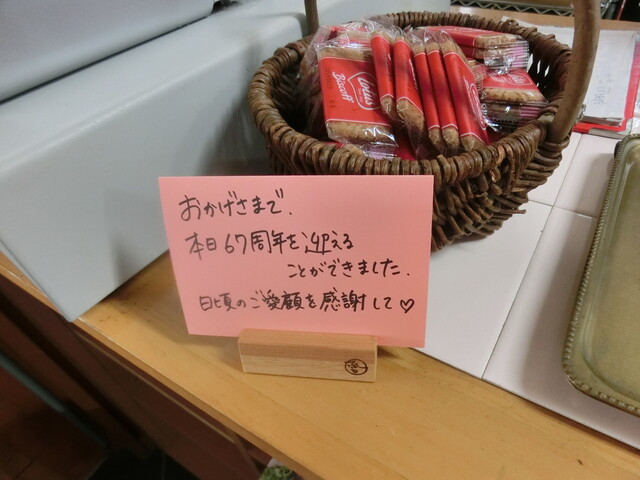 おかげさまで.
本日67周年を迎える
ことができました.
日頃のご愛顧を感謝して♡
Lotus
Biscoff